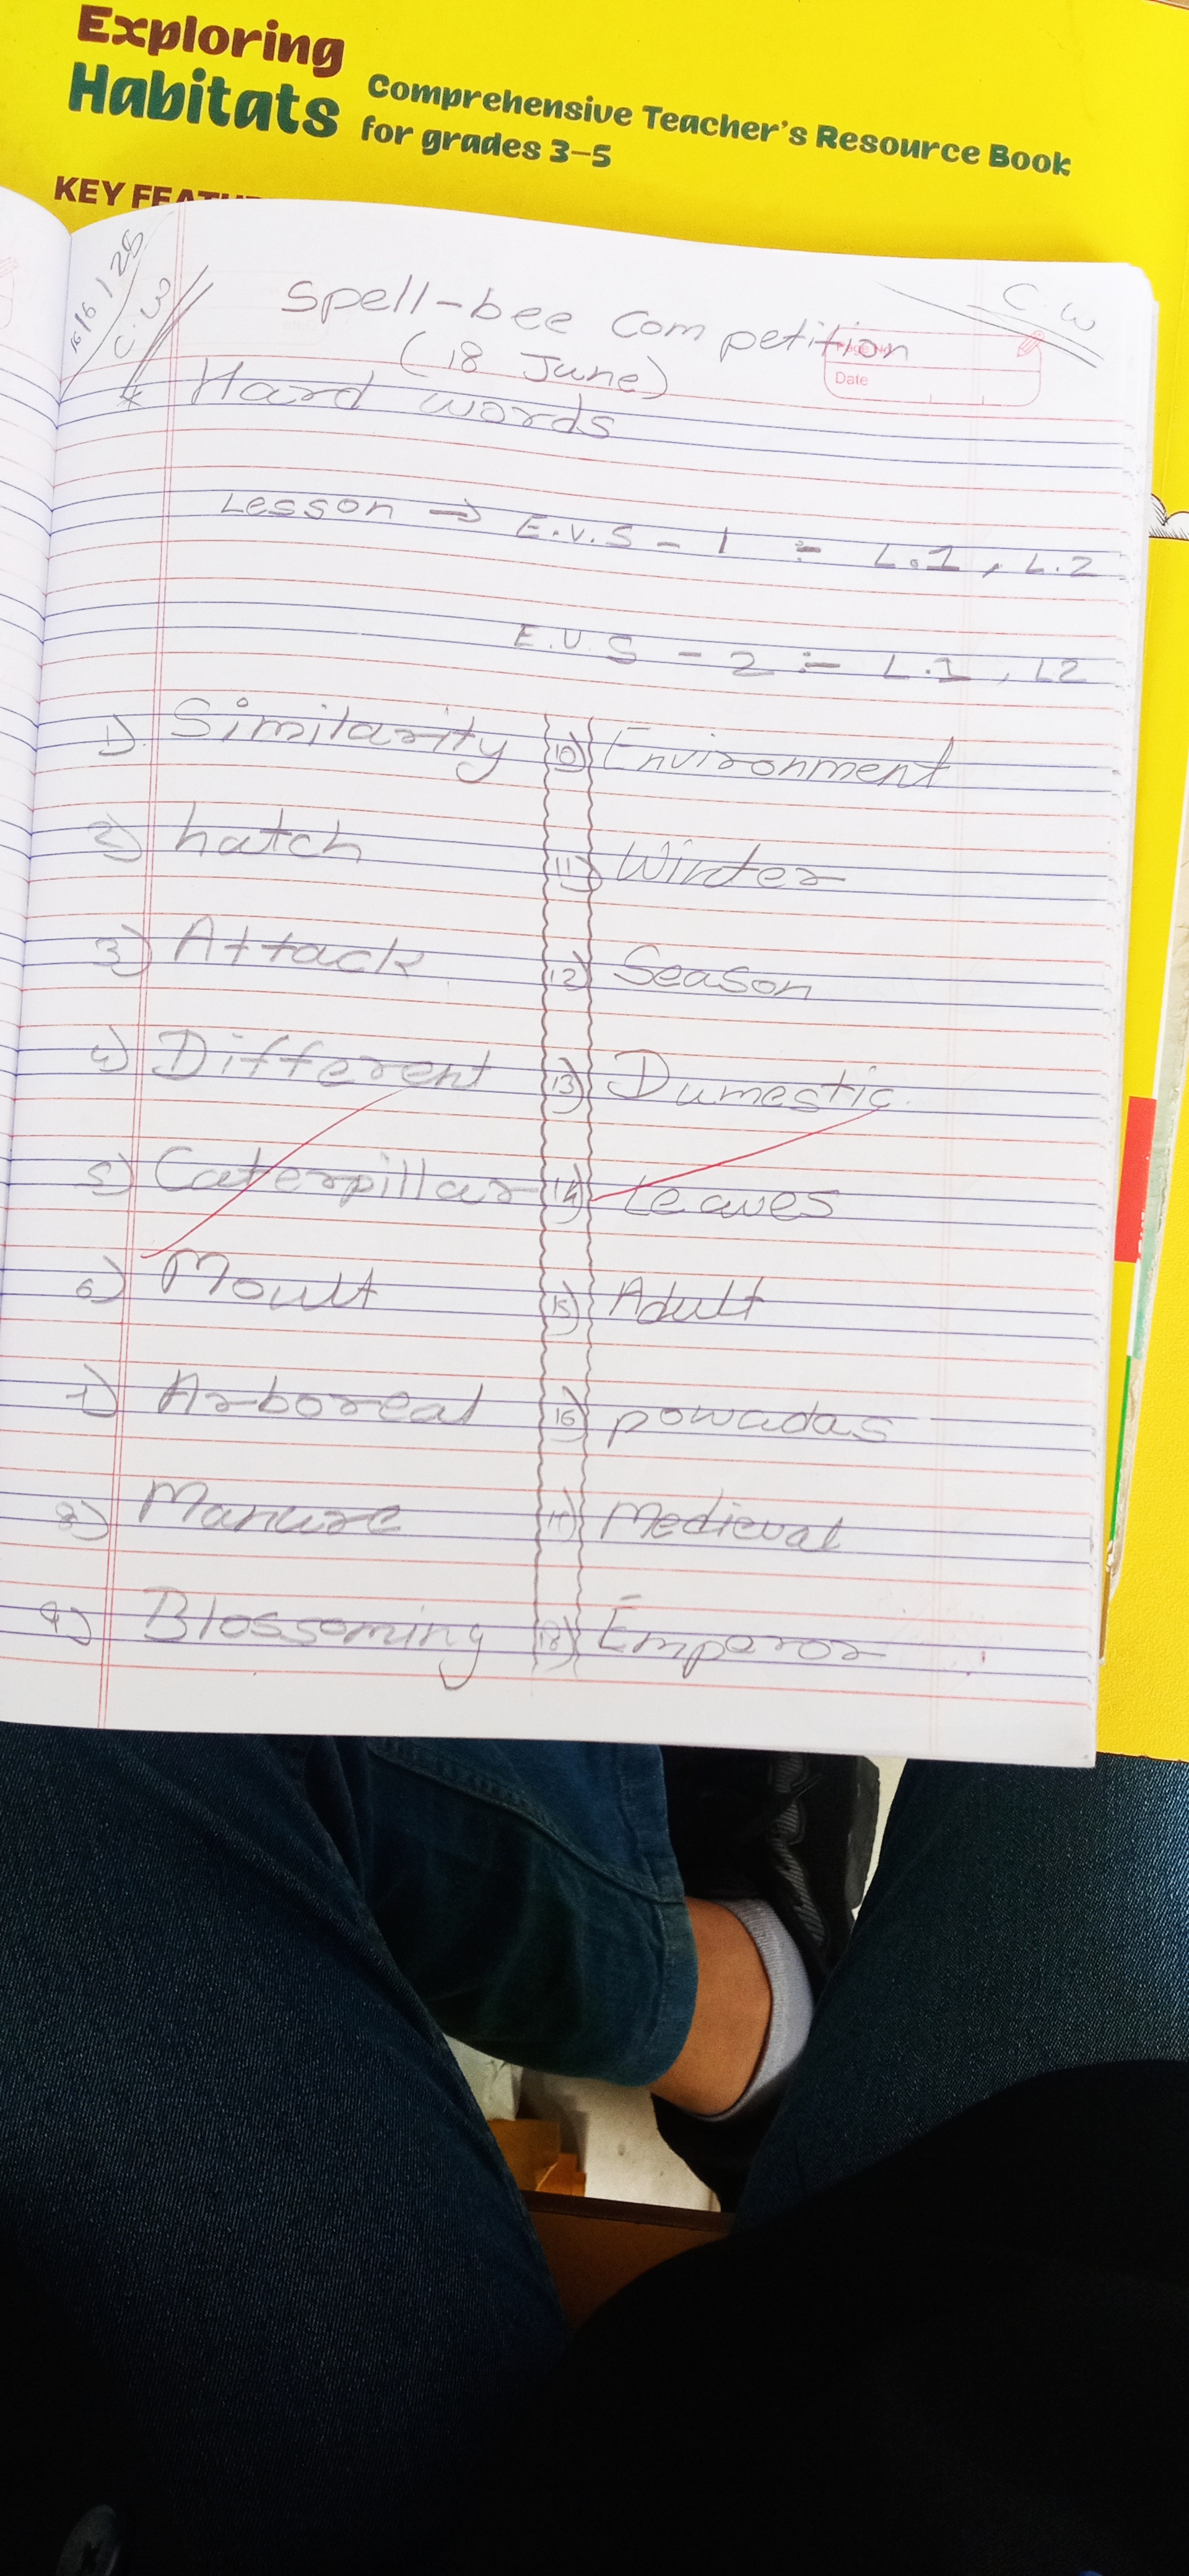 Exploring
Habitats
Comprehensive Teacher's Resource Book
for grades 3–5
KEY
16/6/25
C.W
C.W
Spell-bee Competition
(18 June)
Date
* Hard words
Lesson → E.V.S - 1 :- L.1, L.2
E.V.S - 2 :- L.1, L2
1) Similarity
2) hatch
3) Attack
4) Different
5) Caterpillar
6) Moult
7) Arboreal
8) Manure
9) Blossoming
10) Environment
11) Winter
12) Season
13) Dumestic
14) Leaves
15) Adult
16) powadas
17) Medieval
18) Emporor